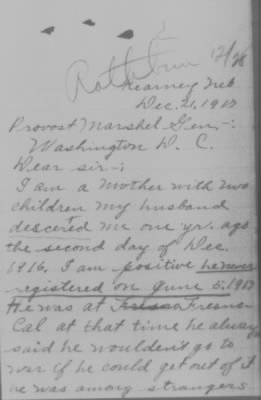 12/28
Kearney Neb
Dec. 21, 1917
Provost Marshel Gen, -:
Washington D. C.
Dear sir -;
I am a mother with two
children my husband
descerted me one yr. ago
the second day of Dec.
1916. I am positive he never
registered on June 5. 1917
He was at Frisco Fresno
Cal at that time he always
said he wouldent go to
war if he could get out of it
he was among strangers